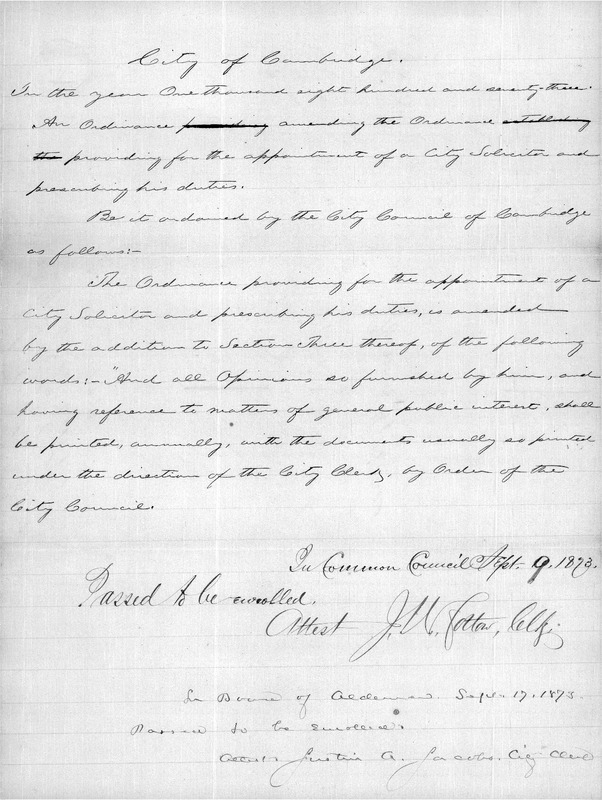 City of Cambridge.
In the year One thousand eight hundred and seventy-three.
An Ordinance providing amending the Ordinance establishing
the providing for the appointment of a City Solicitor and
prescribing his duties.
Be it ordained by the City Council of Cambridge
as follows:-
The Ordinance providing for the appointment of a
City Solicitor and prescribing his duties, is amended
by the addition to Section Three thereof, of the following
words:- "And all Opinions so furnished by him, and
having reference to matters of general public interest, shall
be printed, annually, with the documents usually so printed
under the direction of the City Clerk, by Order of the
City Council.
In Common Council Sept. 9, 1873.
Passed to be enrolled.
Attest J. W. Cotton, Clk.
In Board of Aldermen. Sept. 17, 1873.
Passed to be enrolled.
Attest Justin A. Jacobs. City Clerk